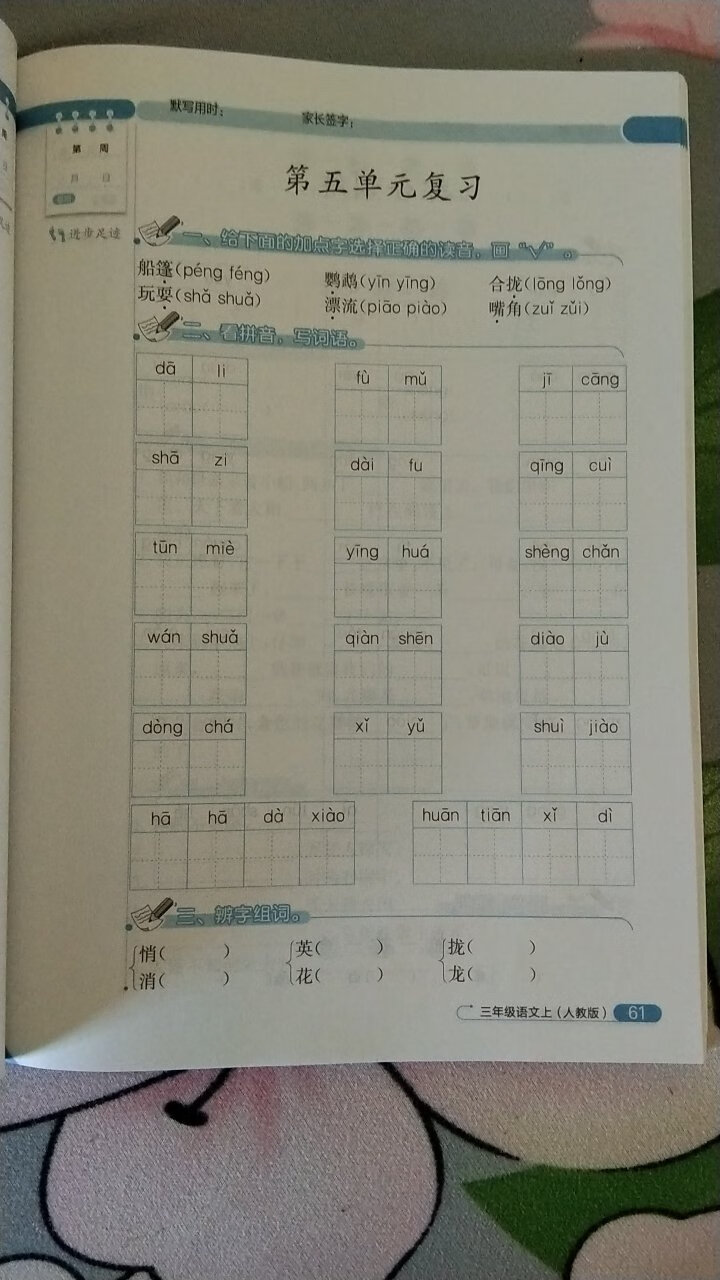 默写用时：　家长签字：
第　周
月　日
进步足迹
第五单元复习
一、给下面的加点字选择正确的读音，画“√”。
船篷(péng féng)　鹦鹉(yīn yīng)　合拢(lōng lǒng)
玩耍(shǎ shuǎ)　漂流(piāo piào)　嘴角(zuǐ zǔi)
二、看拼音，写词语。
dā li　fù mǔ　jī cāng
shā zi　dài fu　qīng cuì
tūn miè　yīng huá　shèng chǎn
wán shuǎ　qiàn shēn　diào jù
dòng chá　xǐ yǔ　shuì jiào
hā hā dà xiào　huān tiān xǐ dì
三、辨字组词。
悄(　)　英(　)　拢(　)
消(　)　花(　)　龙(　)
三年级语文上（人教版）　61